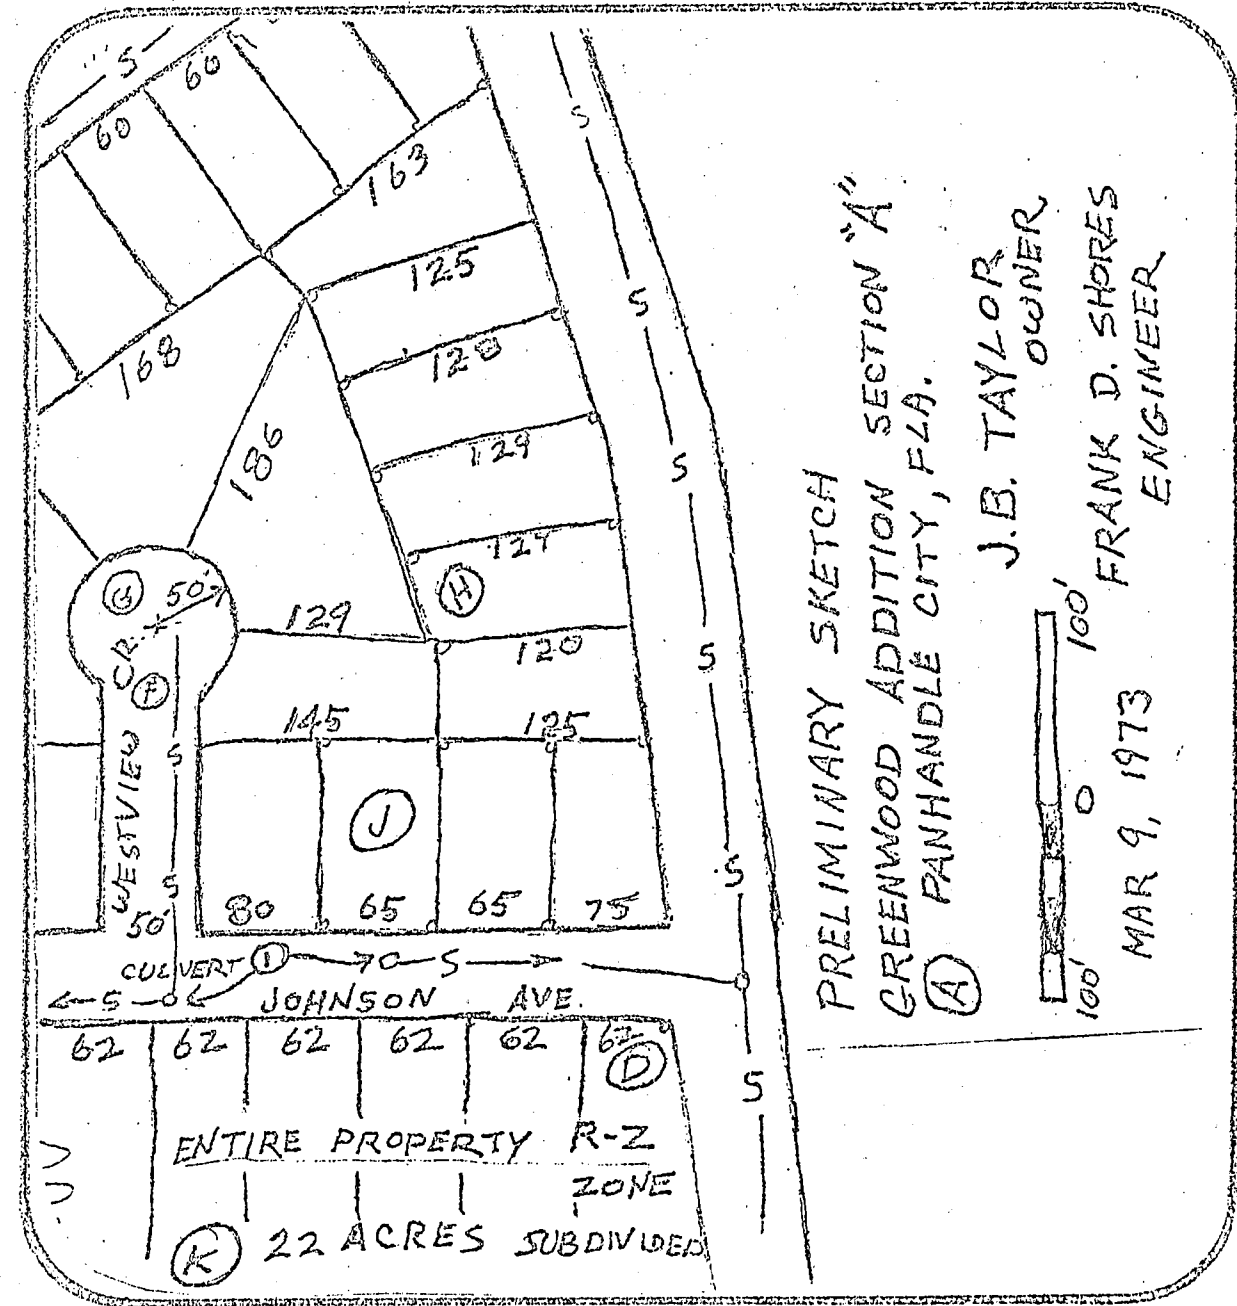 S
60
60
S
163
125
S
168
128
186
129
S
127
G
50'
H
129
120
S
CR.
F
145
125
S
WESTVIEW
J
S
S
80
65
65
75
50'
CULVERT
I
S
S
JOHNSON AVE.
62
62
62
62
62
62
D
S
ENTIRE PROPERTY R-Z
ZONE
K
22 ACRES SUBDIVIDED
PRELIMINARY SKETCH
GREENWOOD ADDITION SECTION "A"
A
PANHANDLE CITY, FLA.
J.B. TAYLOR
OWNER
100'
0
100'
FRANK D. SHORES
ENGINEER
MAR 9, 1973